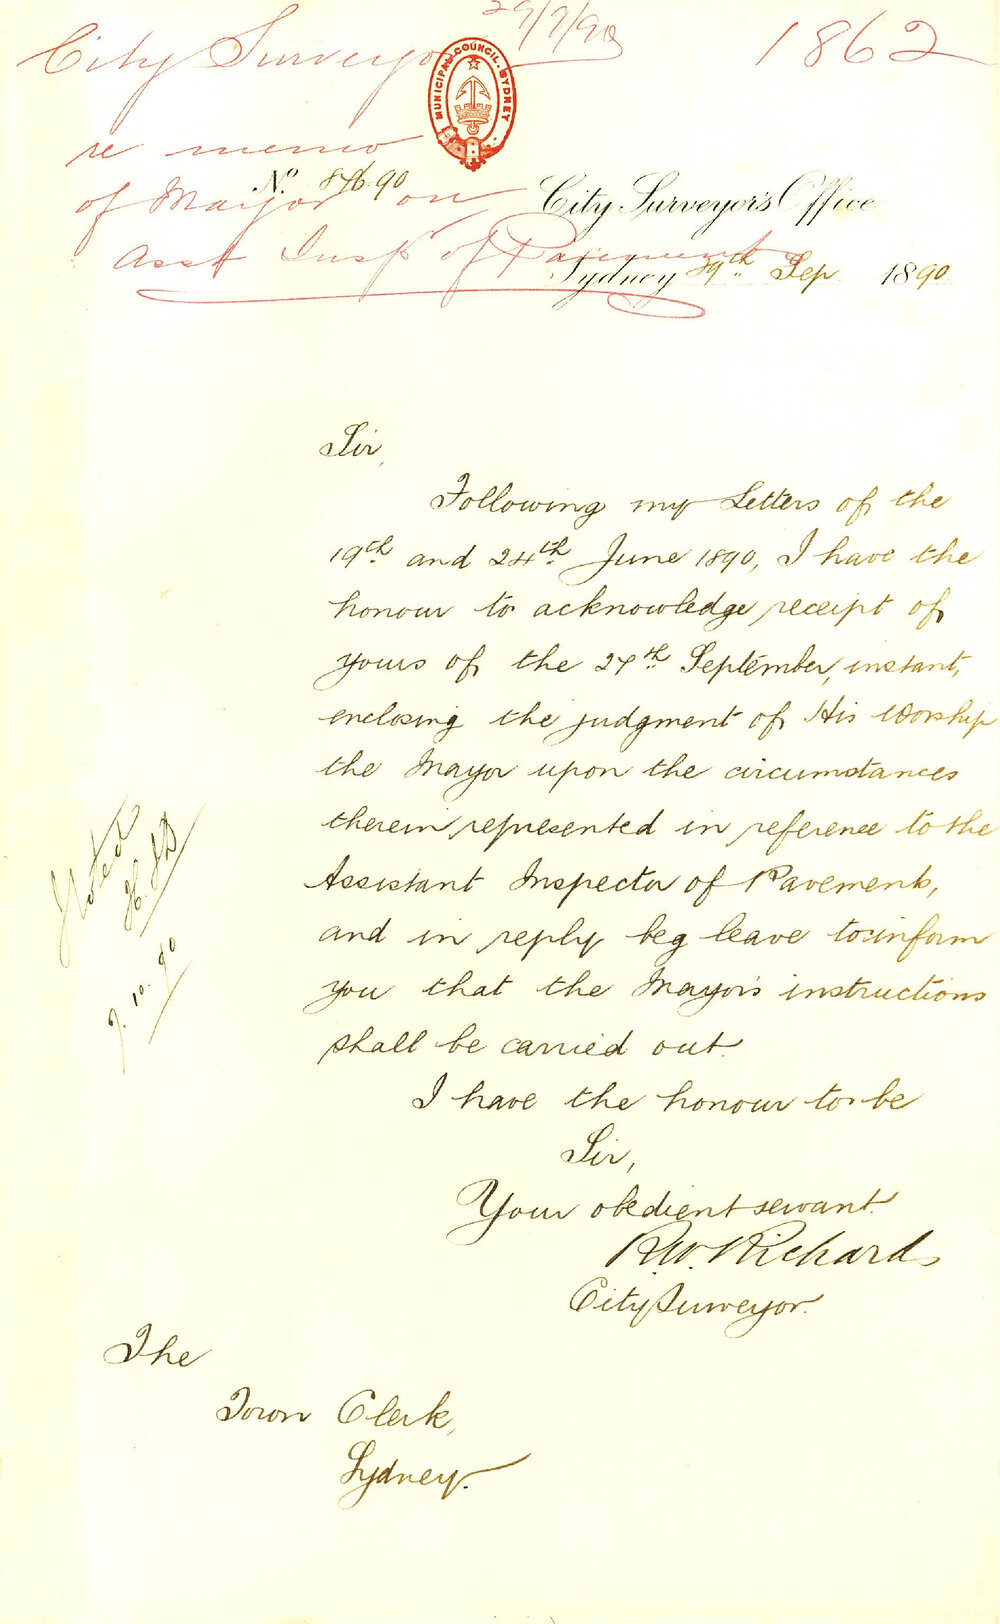 City Surveyor 29/9/90
1862
MUNICIPAL COUNCIL. SYDNEY
re memo
of Mayor on
Asst Insp of Pavements
No. 876.90
City Surveyor's Office
Sydney 29th Sep 1890
Sir,
Following my Letters of the
19th and 24th June 1890, I have the
honour to acknowledge receipt of
yours of the 27th September, instant,
enclosing the judgment of His Worship
the Mayor upon the circumstances
therein represented in reference to the
Assistant Inspector of Pavements,
and in reply beg leave to inform
you that the Mayor's instructions
shall be carried out.
I have the honour to be
Sir,
Your obedient servant.
R.W. Richards
City Surveyor.
The
Town Clerk,
Sydney.
Noted
7.10.90